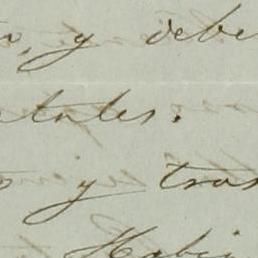 y debe
tales.
y tras
Habi